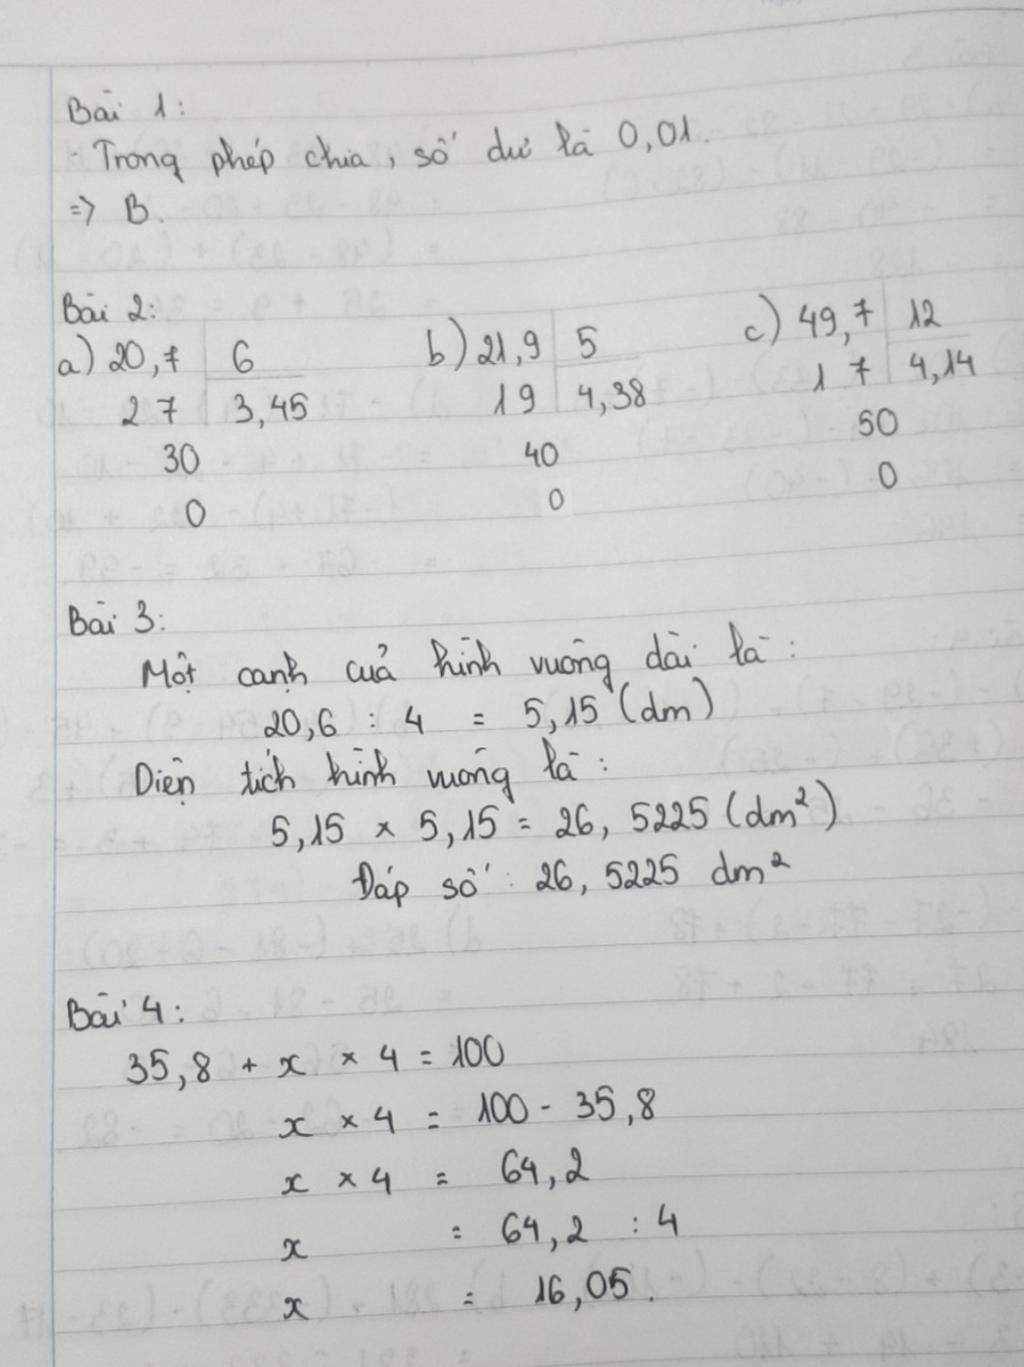 Bài 1:
- Trong phép chia, số dư là 0,01.
=> B.
Bài 2:
a) 20,7 6
27 3,45
30
0
b) 21,9 5
19 4,38
40
0
c) 49,7 12
17 4,14
50
0
Bài 3:
Một cạnh của hình vuông dài là:
20,6 : 4 = 5,15 (dm)
Diện tích hình vuông là:
5,15 × 5,15 = 26,5225 (dm²)
Đáp số: 26,5225 dm²
Bài 4:
35,8 + x × 4 = 100
x × 4 = 100 - 35,8
x × 4 = 64,2
x = 64,2 : 4
x = 16,05.